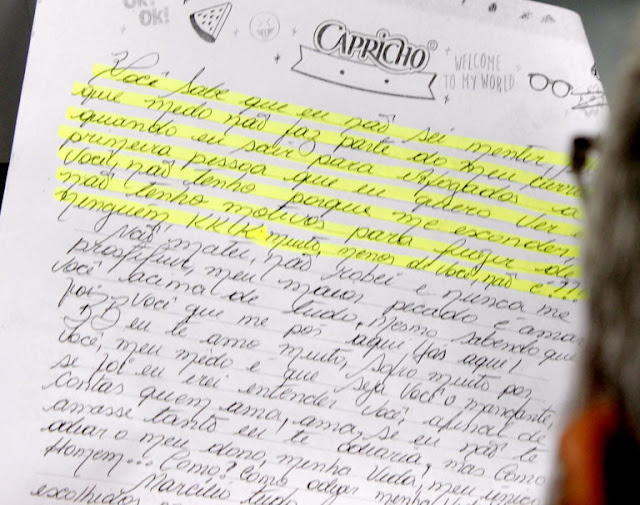 Ok!
Ok!
CAPRICHO
WELCOME
TO MY WORLD
Você sabe que eu não sei mentir,
que medo não faz parte do meu
quando eu sair para
primeira pessoa que eu quero ver é
você, não tenho porque me esconder,
não tenho motivos para fugir de
ninguém KKK muito menos de você, não é???
Não matei, não roubei e nunca me
prostitui, meu maior pecado é amar
você acima de tudo, mesmo sabendo que
foi você que me pôs aqui
eu te amo muito, sofro muito por
você, meu medo é que seja você o mandante,
se foi eu irei entender você, afinal de
contas quem ama, ama, se eu não te
amasse tanto eu te odiaria, mas como
odiar o meu dono, minha vida, meu único
Homem... Como? Como odiar minha
Marcelo tudo
escolhidos